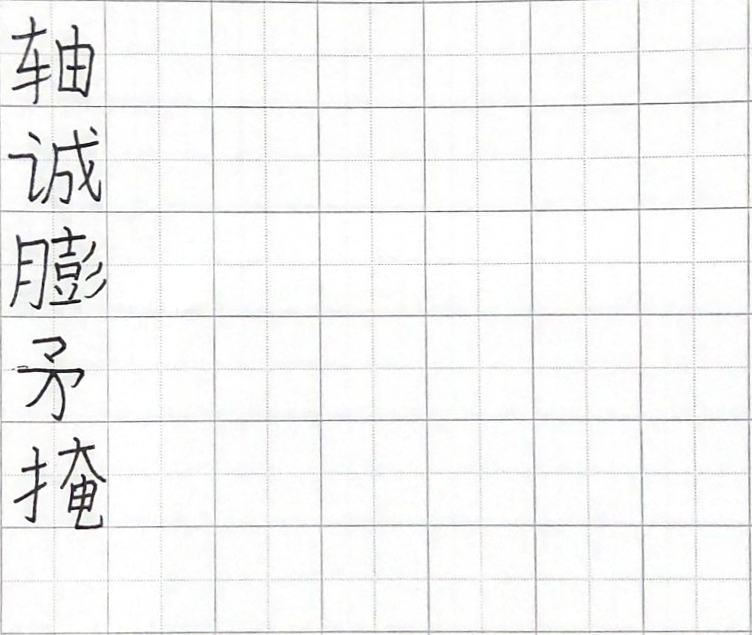 轴
诚
膨
矛
掩